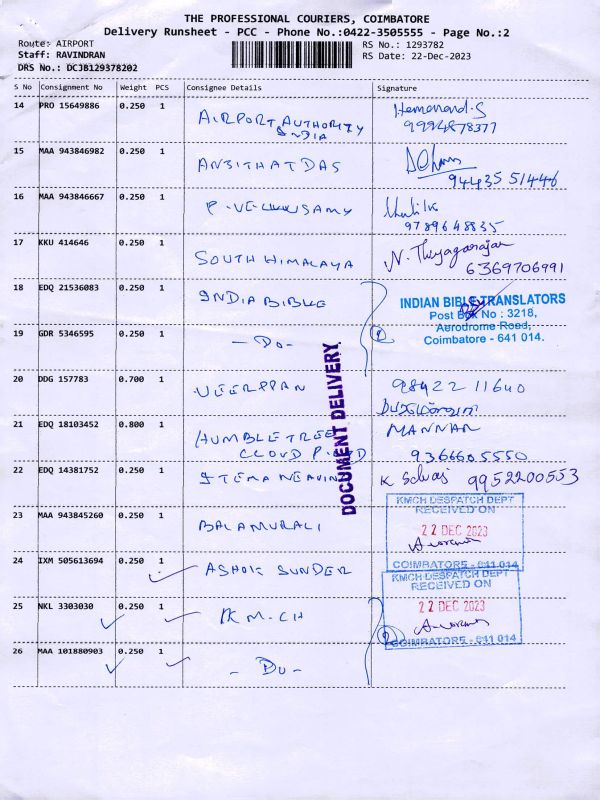 THE PROFESSIONAL COURIERS, COIMBATORE
Delivery Runsheet - PCC - Phone No.:0422-3505555 - Page No.:2
Route: AIRPORT
Staff: RAVINDRAN
DRS No.: DCJB129378202
RS No.: 1293782
RS Date: 22-Dec-2023
S No Consignment No Weight PCS Consignee Details Signature
14 PRO 15649886 0.250 1 AIRPORT AUTHORITY
INDIA
15 MAA 943846982 0.250 1 ANBITHAT DAS
94435 51446
16 MAA 943846667 0.250 1
9789648835
17 KKU 414646 0.250 1 SOUTH HIMALAYA N. Thyagarajan
6369706991
18 EDQ 21536083 0.250 1 INDIA BIBLE
INDIAN BIBLE TRANSLATORS
Post Box No : 3218,
Aerodrome Road,
Coimbatore - 641 014.
19 GDR 5346595 0.250 1 - Do -
DOCUMENT DELIVERY
20 DDG 157783 0.700 1 98422 11640
21 EDQ 18103452 0.800 1 HUMBLE TREE MANNAR
CLOUD 9366605550
22 EDQ 14381752 0.250 1 K Selvaj 9952200553
23 MAA 943845260 0.250 1 BALAMURALI
KMCH DESPATCH DEPT
RECEIVED ON
22 DEC 2023
COIMBATORE - 641 014
24 IXM 505613694 0.250 1 ASHOK SUNDER
25 NKL 3303030 0.250 1 KM-CH
KMCH DESPATCH DEPT
RECEIVED ON
22 DEC 2023
COIMBATORE - 641 014
26 MAA 101880903 0.250 1 - Do -